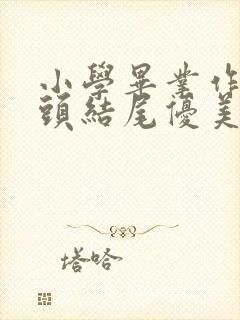 小學畢業作
頭結尾優美
塔哈